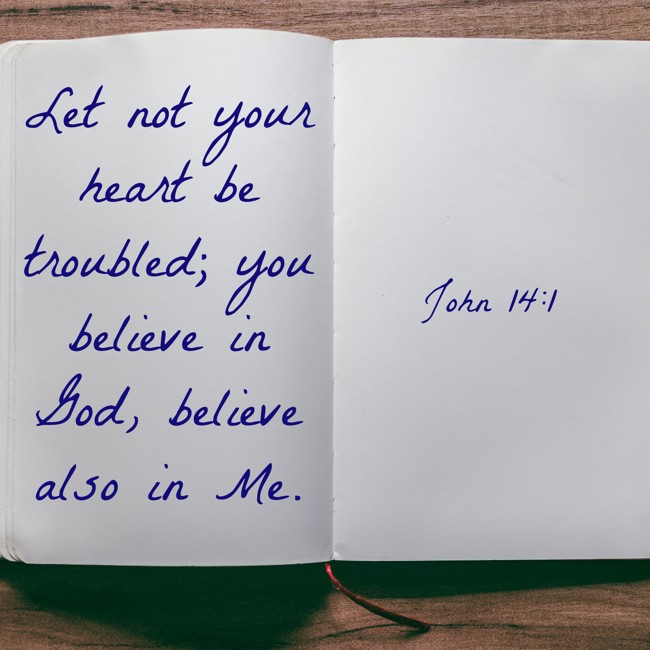 Let not your
heart be
troubled; you
believe in
God, believe
also in Me.
John 14:1